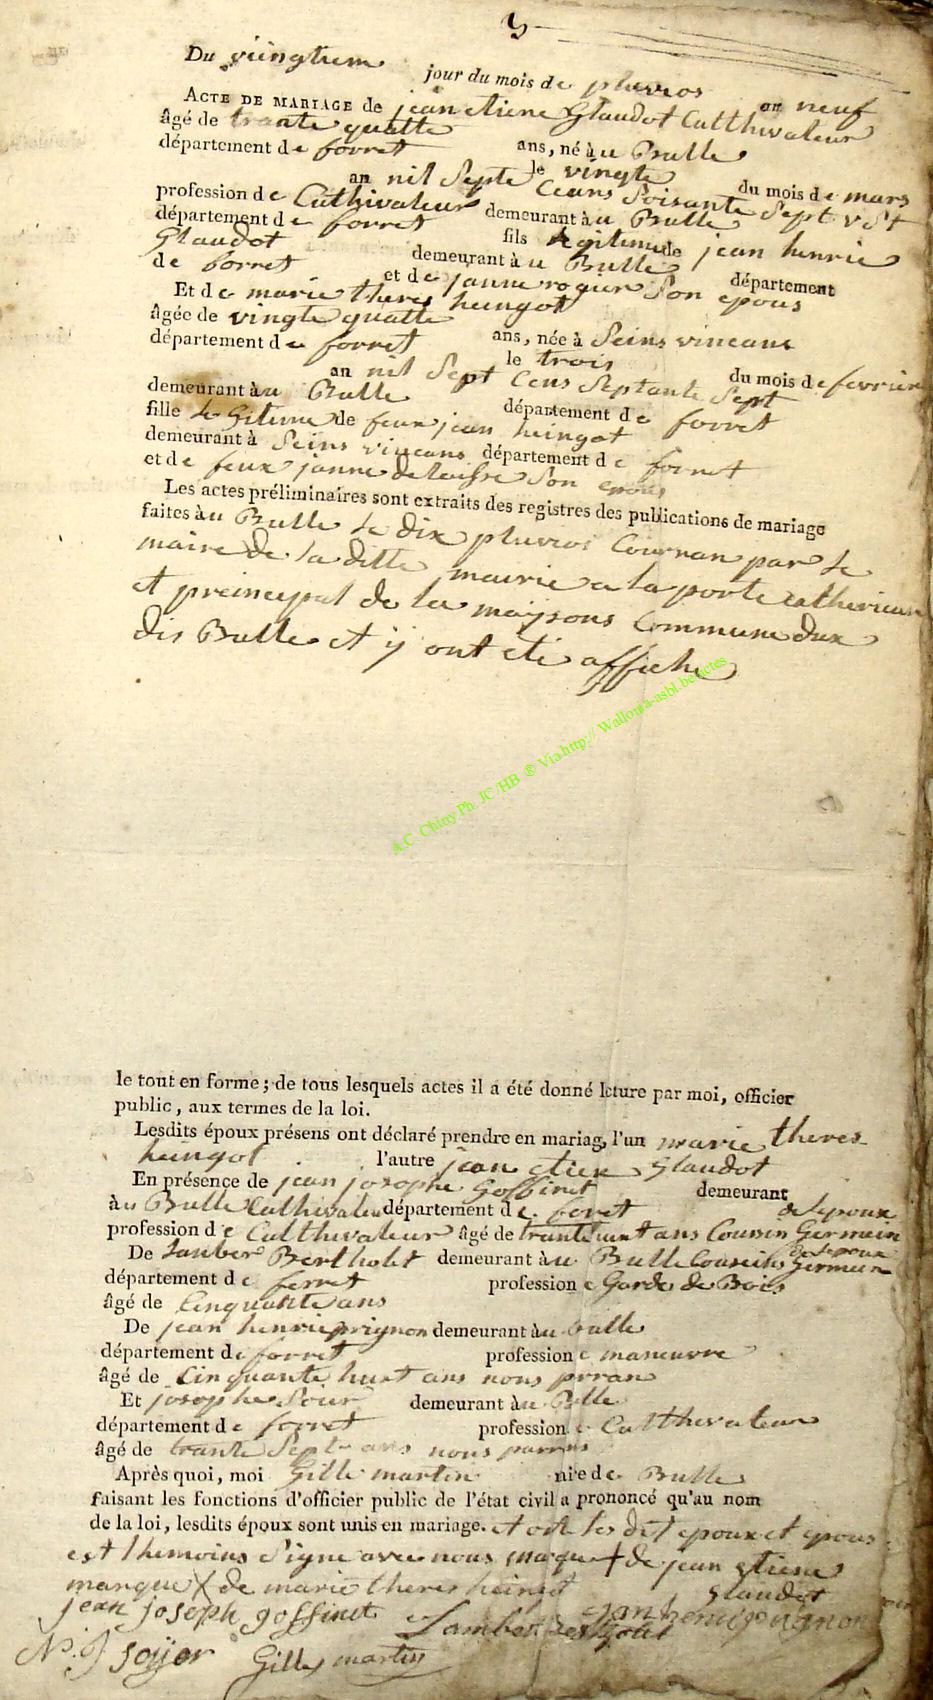 3
Du viingtiem jour du mois de pluvios an neuf
ACTE DE MARIAGE de jean etiene Glaudot Culthivateur
âgé de trante quatte ans, né àu Bulle
département de forret le vingte du mois de mars
an mil Septe Ceans Soisante Sept
profession de Culthivateur demeurant àu Bulle
département de forret fils legitime de jean henrie
Glaudot demeurant àu Bulle département
de forret et de janne rogier Son epous
Et de marie theres heingot
âgée de vingte quatte ans, née à Seins vincans
département de forret le trois du mois de fevrier
an mil Sept Cens Septante Sept
demeurant àu Bulle département de forret
fille legitime de feux jean heingot
demeurant à Seins vincans département de forret
et de feux janne delaisse Son epous
Les actes préliminaires sont extraits des registres des publications de mariage
faites àu Bulle le dix pluvios Courran par le
maire de la ditte mairie a la porte
et preincipal de la maysons Commune dux
dis Bulle et ij ont etE affiche
A.C. Chiny.Ph. JC/HB ® Via.http:// Wallonia-asbl.be/actes
le tout en forme; de tous lesquels actes il a été donné lcture par moi, officier
public, aux termes de la loi.
Lesdits époux présens ont déclaré prendre en mariag, l'un marie theres
heingot l'autre jean etien Glaudot
En présence de jean josophe Goffinet demeurant
àu Bulle Culthivateu département de foret de lepoux
profession de Culthivateur âgé de trante huit ans Cousin Germain
De Lanber Bertholet demeurant àu Bulle Couseihs Germein de lepoux
département de ferret profession e Garde de Bois
âgé de Cinquante ans
De jean henrie prignon demeurant àu bulle
département de forret profession e maneuvre
âgé de Cinquante huit ans nous prran
Et josophe Soier demeurant àu Bulle
département de forret profession e Culthivateur
âgé de trante Sept ans nous parrans
Après quoi, moi Gille martin mire de Bulle
faisant les fonctions d'officier public de l'état civil a prononcé qu'au nom
de la loi, lesdits époux sont unis en mariage. et ont les dit epoux et epous
est themoins Signe avec nous marque + de jean etiene
marque X de marie theres heingot Glaudot
jean joseph goffinet Lambert Bertholet jan henri prignon
N. J soyer Gille martin